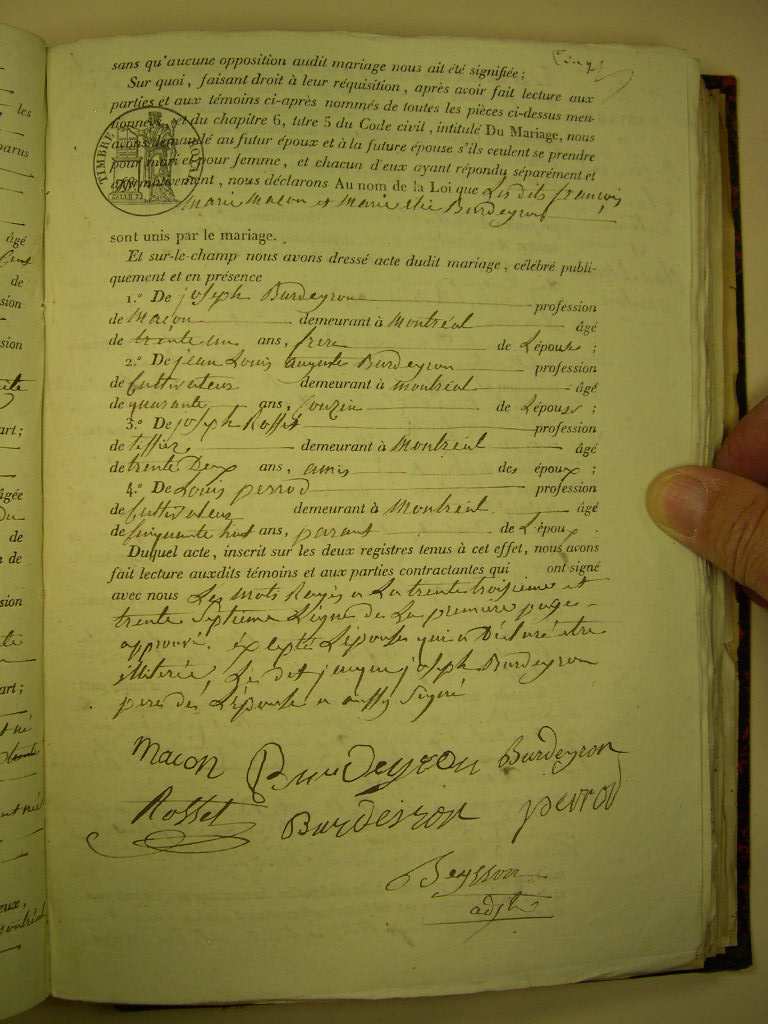 Cinq
sans qu'aucune opposition audit mariage nous ait été signifiée;
Sur quoi, faisant droit à leur réquisition, après avoir fait lecture aux
parties et aux témoins ci-après nommés de toutes les pièces ci-dessus men-
tionnées, et du chapitre 6, titre 5 du Code civil, intitulé Du Mariage, nous
avons demandé au futur époux et à la future épouse s'ils veulent se prendre
pour mari et pour femme, et chacun d'eux ayant répondu séparément et
affirmativement, nous déclarons Au nom de la Loi que Les dits françois
marie macon et Marie Burdeyron
sont unis par le mariage.
Et sur-le-champ nous avons dressé acte dudit mariage, célébré publi-
quement et en présence
1.º De joseph Burdeyron profession
de Maçon demeurant à Montréal âgé
de trente un ans, frere de L'épouse;
2.º De jean Louis auguste Burdeyron profession
de Cultivateur demeurant à montréal âgé
de quarante ans, couzin de L'épouse;
3.º De joseph Rosset profession
de tissier demeurant à Montréal âgé
de trente Deux ans, amis des époux;
4.º De Louis perrod profession
de Cultivateur demeurant à Montréal âgé
de cinquante huit ans, parant de L'époux.
Duquel acte, inscrit sur les deux registres tenus à cet effet, nous avons
fait lecture auxdits témoins et aux parties contractantes qui ont signé
avec nous Les Mots Rayés a La trente troisieme et
trente septieme Ligne de La premiere page
approuvé. éxcepté L'épouse qui a Déclaré étre
illiterée, Le dit jacque joseph Burdeyron
pere de L'épouse a aussy signé
macon Burdeyron Burdeyron
Rosset Burdeyron perrod
Beysson
adjt
TIMBRE ROYAL